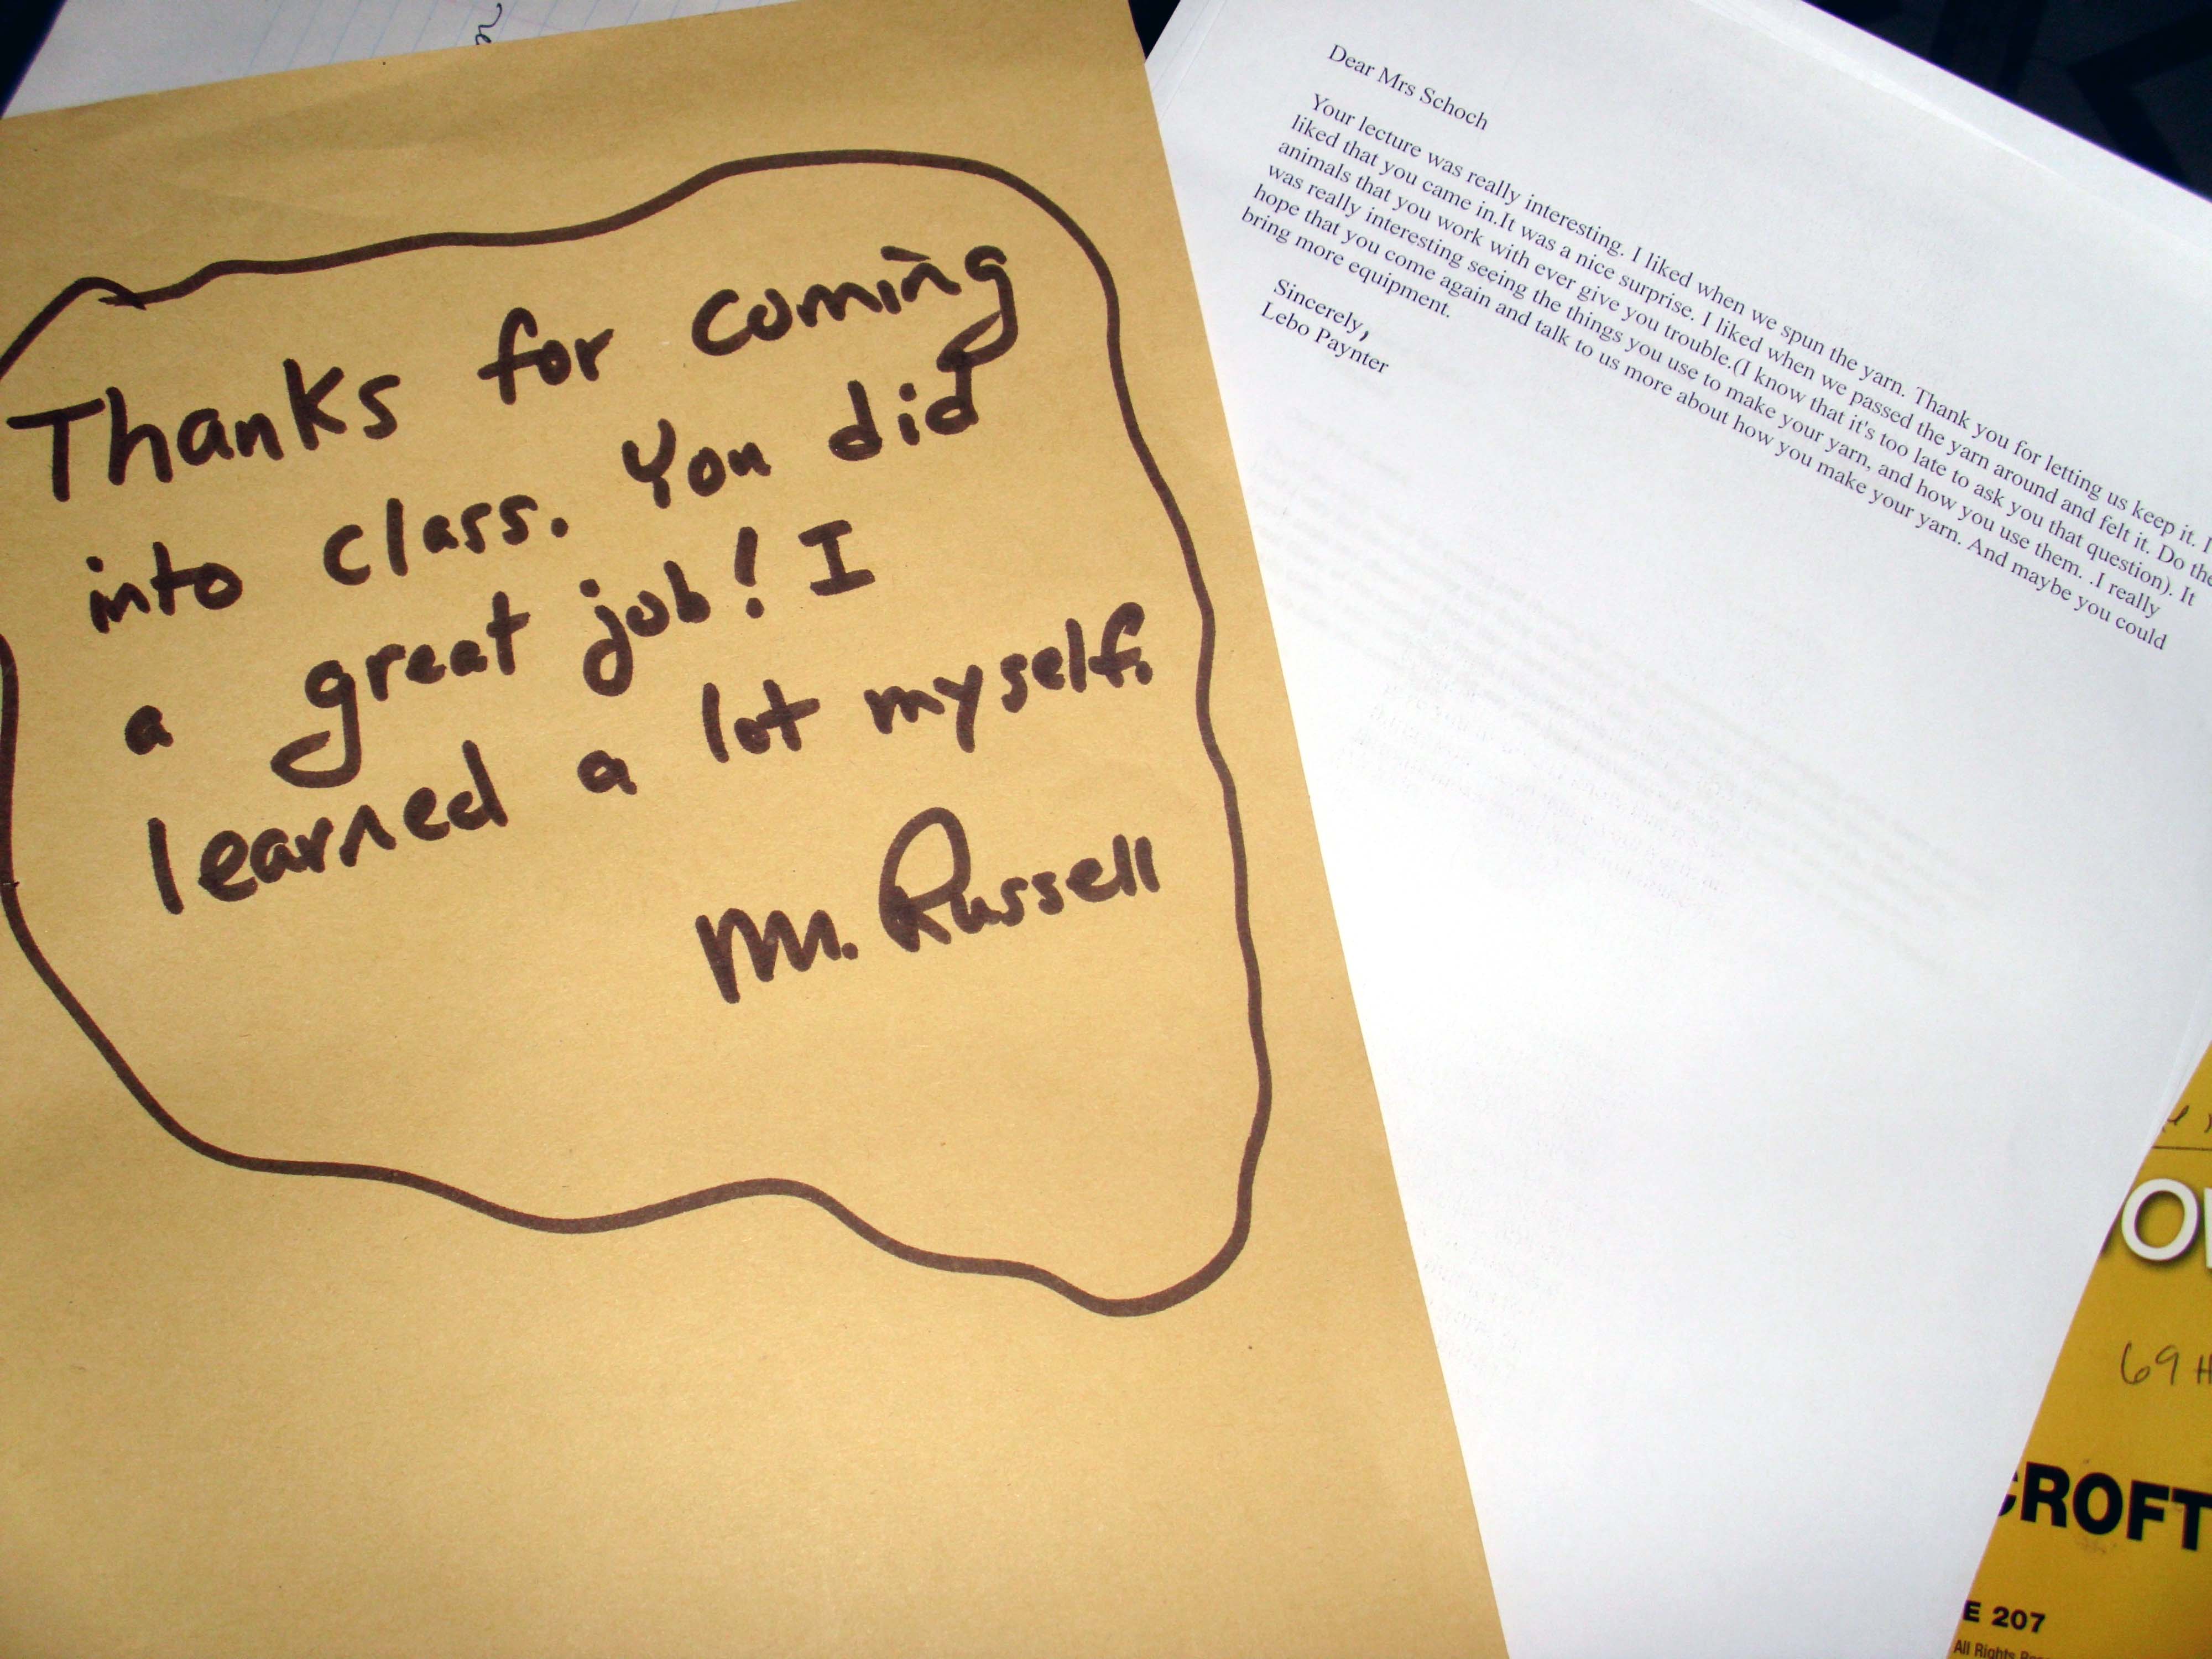 Thanks for coming
into class. You did
a great job! I
learned a lot myself.
Mr. Russell
Dear Mrs Schoch
Your lecture was really interesting. I liked when we spun the yarn. Thank you for letting us keep it. I
liked that you came in.It was a nice surprise. I liked when we passed the yarn around and felt it. Do the
animals that you work with ever give you trouble.(I know that it's too late to ask you that question). It
was really interesting seeing the things you use to make your yarn, and how you use them. .I really
hope that you come again and talk to us more about how you make your yarn. And maybe you could
bring more equipment.
Sincerely,
Lebo Paynter
69 H
CROFT
E 207
All Rights